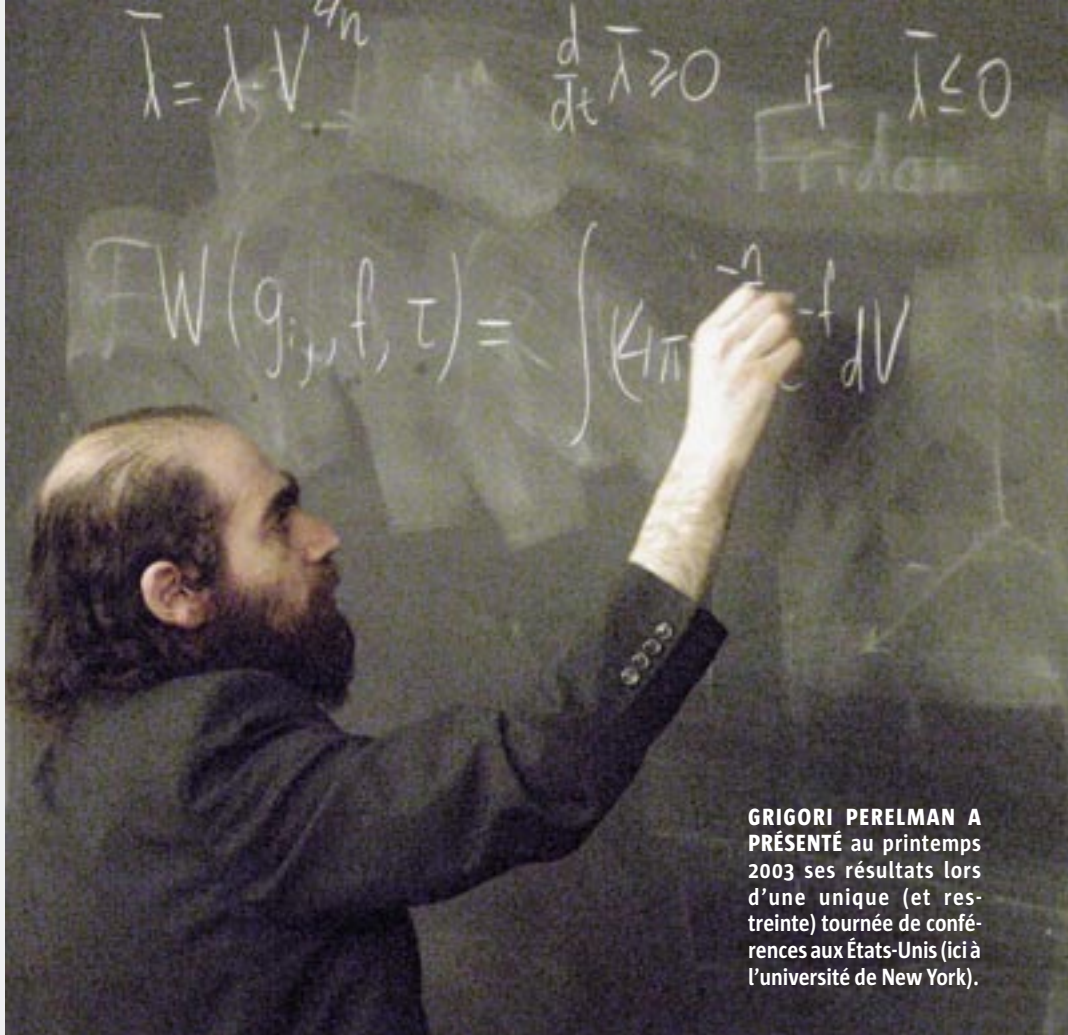 λ̄ = λ·V^{2/n} d/dt λ̄ ≥ 0 if λ̄ ≤ 0
W(g_{ij}, f, τ) = ∫ (4π e^{-f} dV
GRIGORI PERELMAN A
PRÉSENTÉ au printemps
2003 ses résultats lors
d'une unique (et res-
treinte) tournée de confé-
rences aux États-Unis (ici à
l'université de New York).